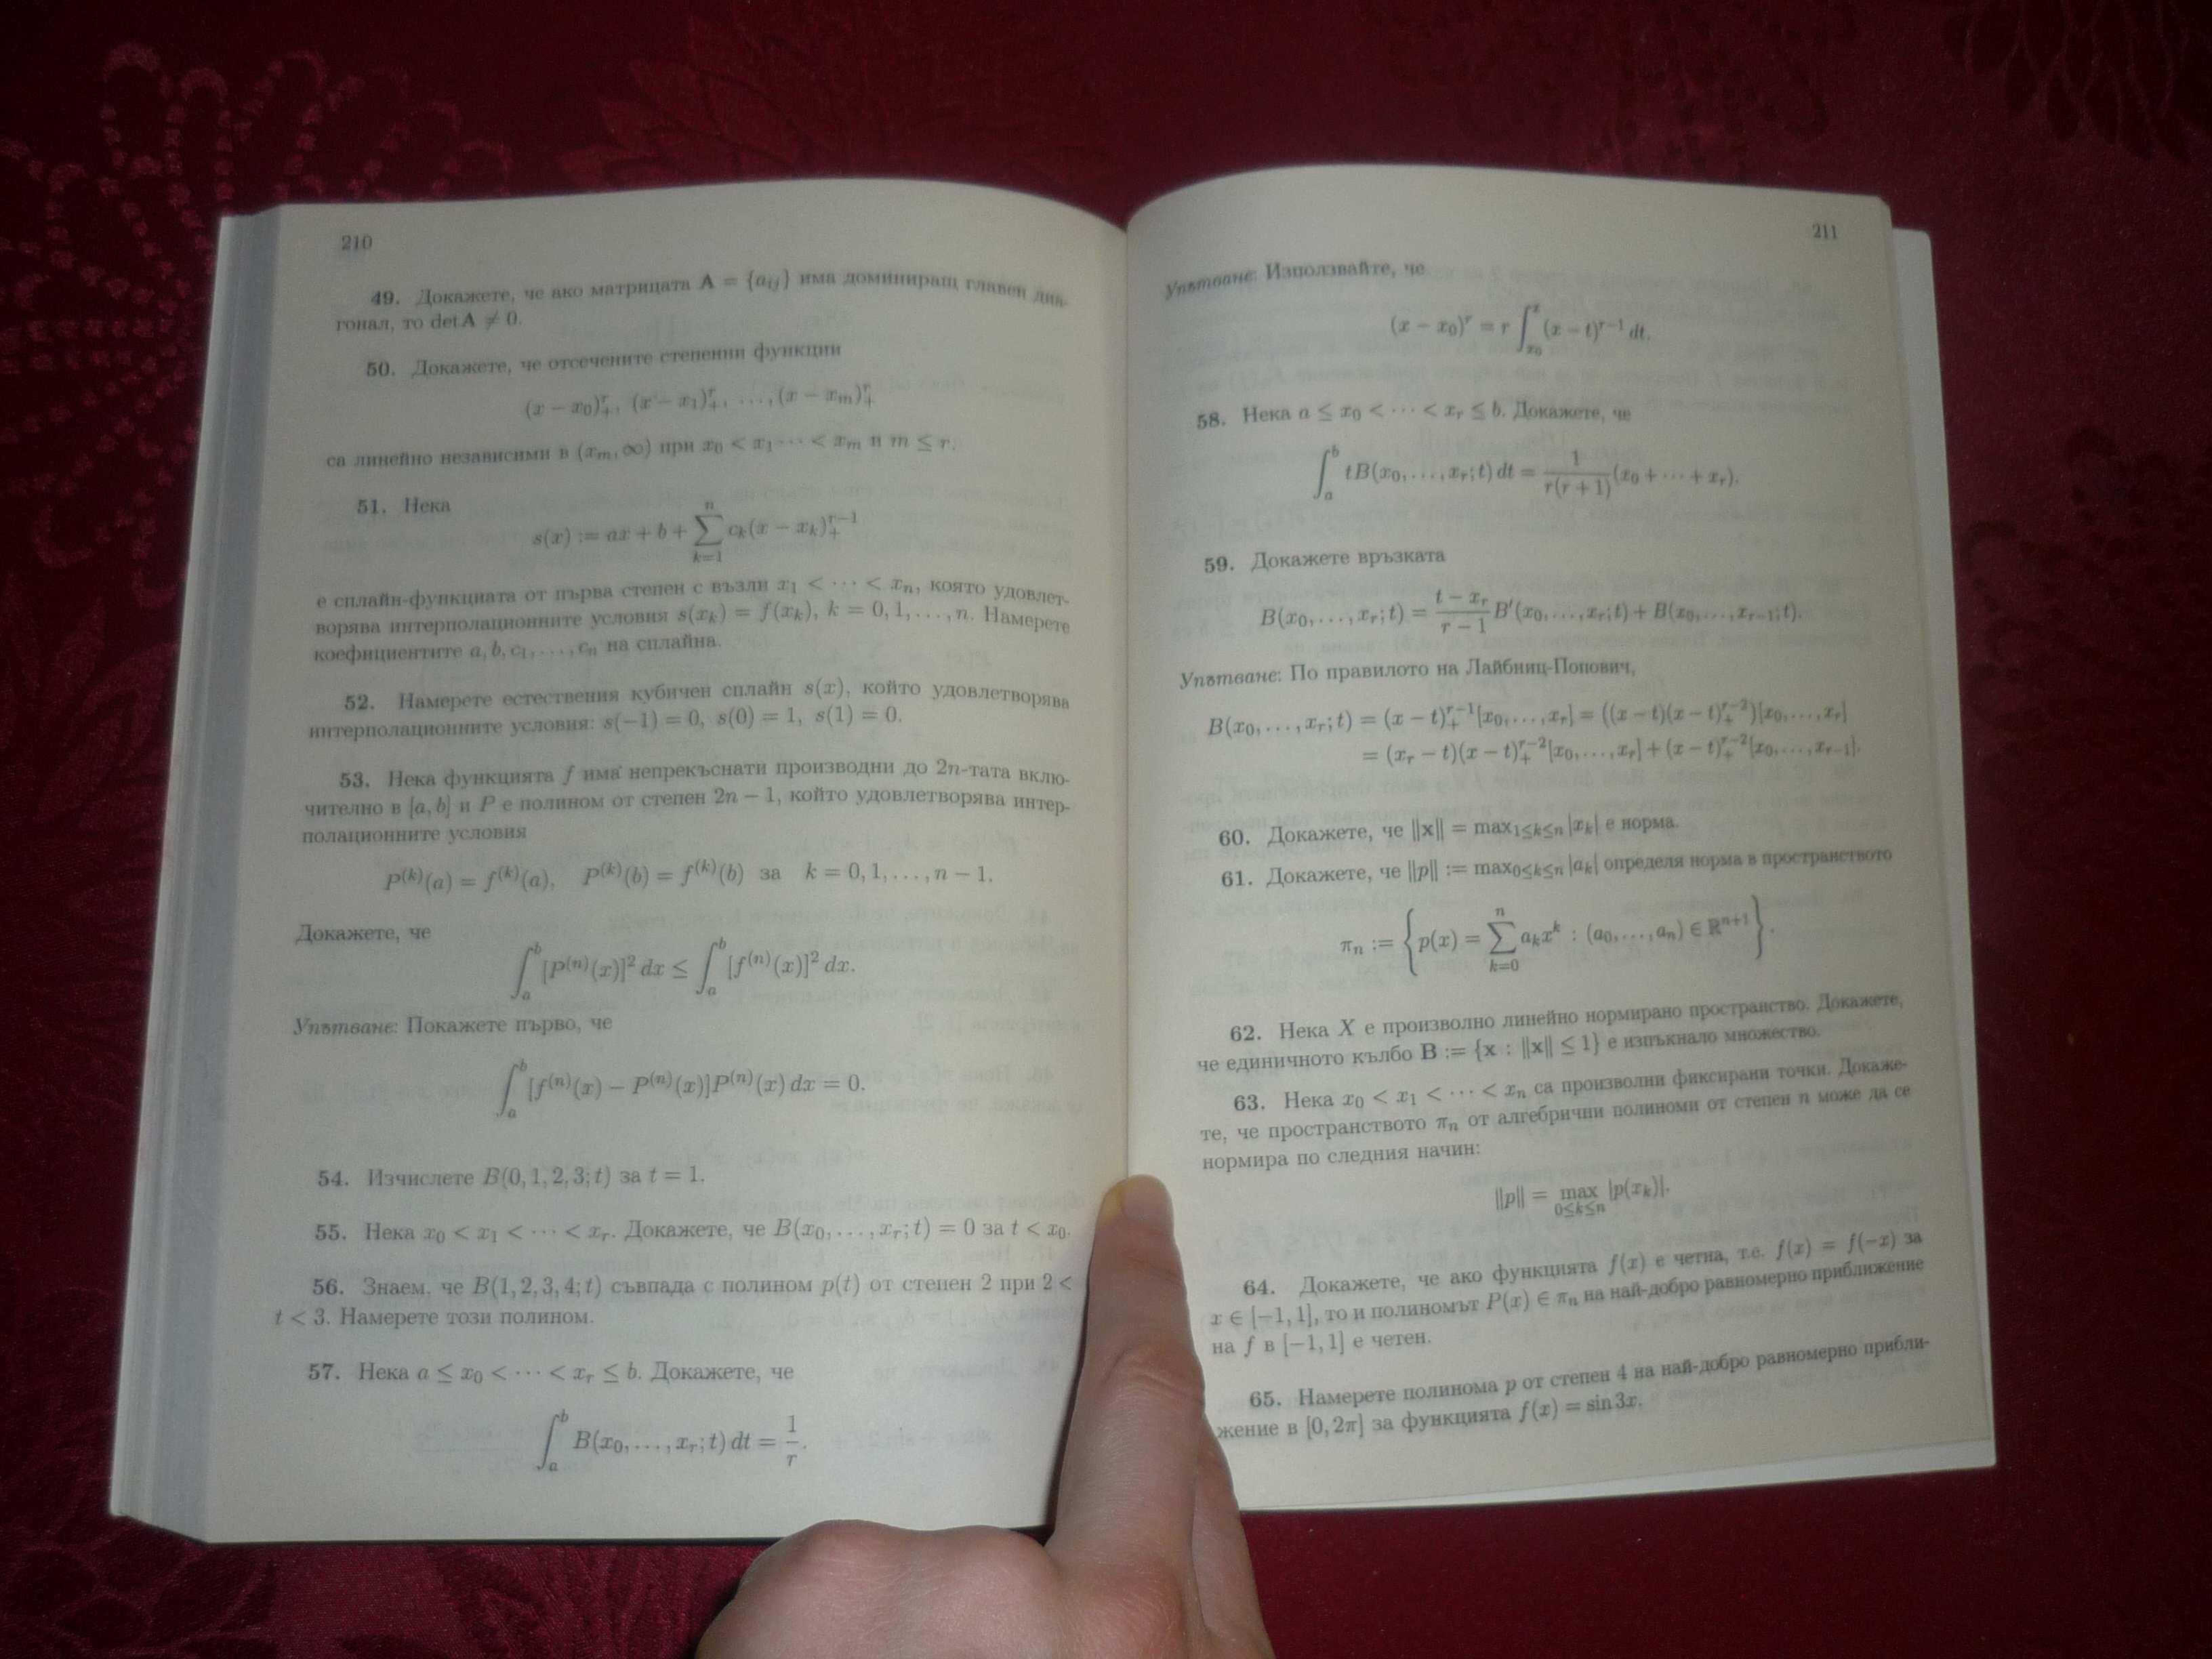 210
49. Докажете, че ако матрицата A = {a_{ij}} има доминиращ главен диа-
гонал, то det A ≠ 0.
50. Докажете, че отсечените степенни функции
(x − x_0)_+^r, (x − x_1)_+^r, …, (x − x_m)_+^r
са линейно независими в (x_m, ∞) при x_0 < x_1 ⋯ < x_m и m ≤ r.
51. Нека
s(x) := ax + b + ∑_{k=1}^{n} c_k(x − x_k)_+^{r−1}
е сплайн-функцията от първа степен с възли x_1 < ⋯ < x_n, която удовлет-
ворява интерполационните условия s(x_k) = f(x_k), k = 0, 1, …, n. Намерете
коефициентите a, b, c_1, …, c_n на сплайна.
52. Намерете естествения кубичен сплайн s(x), който удовлетворява
интерполационните условия: s(−1) = 0, s(0) = 1, s(1) = 0.
53. Нека функцията f има непрекъснати производни до 2n-тата вклю-
чително в [a, b] и P е полином от степен 2n − 1, който удовлетворява интер-
полационните условия
P^{(k)}(a) = f^{(k)}(a), P^{(k)}(b) = f^{(k)}(b) за k = 0, 1, …, n − 1.
Докажете, че
∫_a^b [P^{(n)}(x)]^2 dx ≤ ∫_a^b [f^{(n)}(x)]^2 dx.
Упътване: Покажете първо, че
∫_a^b [f^{(n)}(x) − P^{(n)}(x)]P^{(n)}(x) dx = 0.
54. Изчислете B(0, 1, 2, 3; t) за t = 1.
55. Нека x_0 < x_1 < ⋯ < x_r. Докажете, че B(x_0, …, x_r; t) = 0 за t < x_0.
56. Знаем, че B(1, 2, 3, 4; t) съвпада с полином p(t) от степен 2 при 2 <
t < 3. Намерете този полином.
57. Нека a ≤ x_0 < ⋯ < x_r ≤ b. Докажете, че
∫_a^b B(x_0, …, x_r; t) dt = 1/r.
211
Упътване: Използвайте, че
(x − x_0)^r = r ∫_{x_0}^x (x − t)^{r−1} dt.
58. Нека a ≤ x_0 < ⋯ < x_r ≤ b. Докажете, че
∫_a^b tB(x_0, …, x_r; t) dt = 1/(r(r + 1)) (x_0 + ⋯ + x_r).
59. Докажете връзката
B(x_0, …, x_r; t) = (t − x_r)/(r − 1) B′(x_0, …, x_r; t) + B(x_0, …, x_{r−1}; t).
Упътване: По правилото на Лайбниц-Попович,
B(x_0, …, x_r; t) = (x − t)_+^{r−1}[x_0, …, x_r] = ((x − t)(x − t)_+^{r−2})[x_0, …, x_r]
= (x_r − t)(x − t)_+^{r−2}[x_0, …, x_r] + (x − t)_+^{r−2}[x_0, …, x_{r−1}].
60. Докажете, че ‖x‖ = max_{1≤k≤n} |x_k| е норма.
61. Докажете, че ‖p‖ := max_{0≤k≤n} |a_k| определя норма в пространството
π_n := {p(x) = ∑_{k=0}^{n} a_k x^k : (a_0, …, a_n) ∈ ℝ^{n+1}}.
62. Нека X е произволно линейно нормирано пространство. Докажете,
че единичното кълбо B := {x : ‖x‖ ≤ 1} е изпъкнало множество.
63. Нека x_0 < x_1 < ⋯ < x_n са произволни фиксирани точки. Докаже-
те, че пространството π_n от алгебрични полиноми от степен n може да се
нормира по следния начин:
‖p‖ = max_{0≤k≤n} |p(x_k)|.
64. Докажете, че ако функцията f(x) е четна, т.е. f(x) = f(−x) за
x ∈ [−1, 1], то и полиномът P(x) ∈ π_n на най-добро равномерно приближение
на f в [−1, 1] е четен.
65. Намерете полинома p от степен 4 на най-добро равномерно прибли-
жение в [0, 2π] за функцията f(x) = sin 3x.